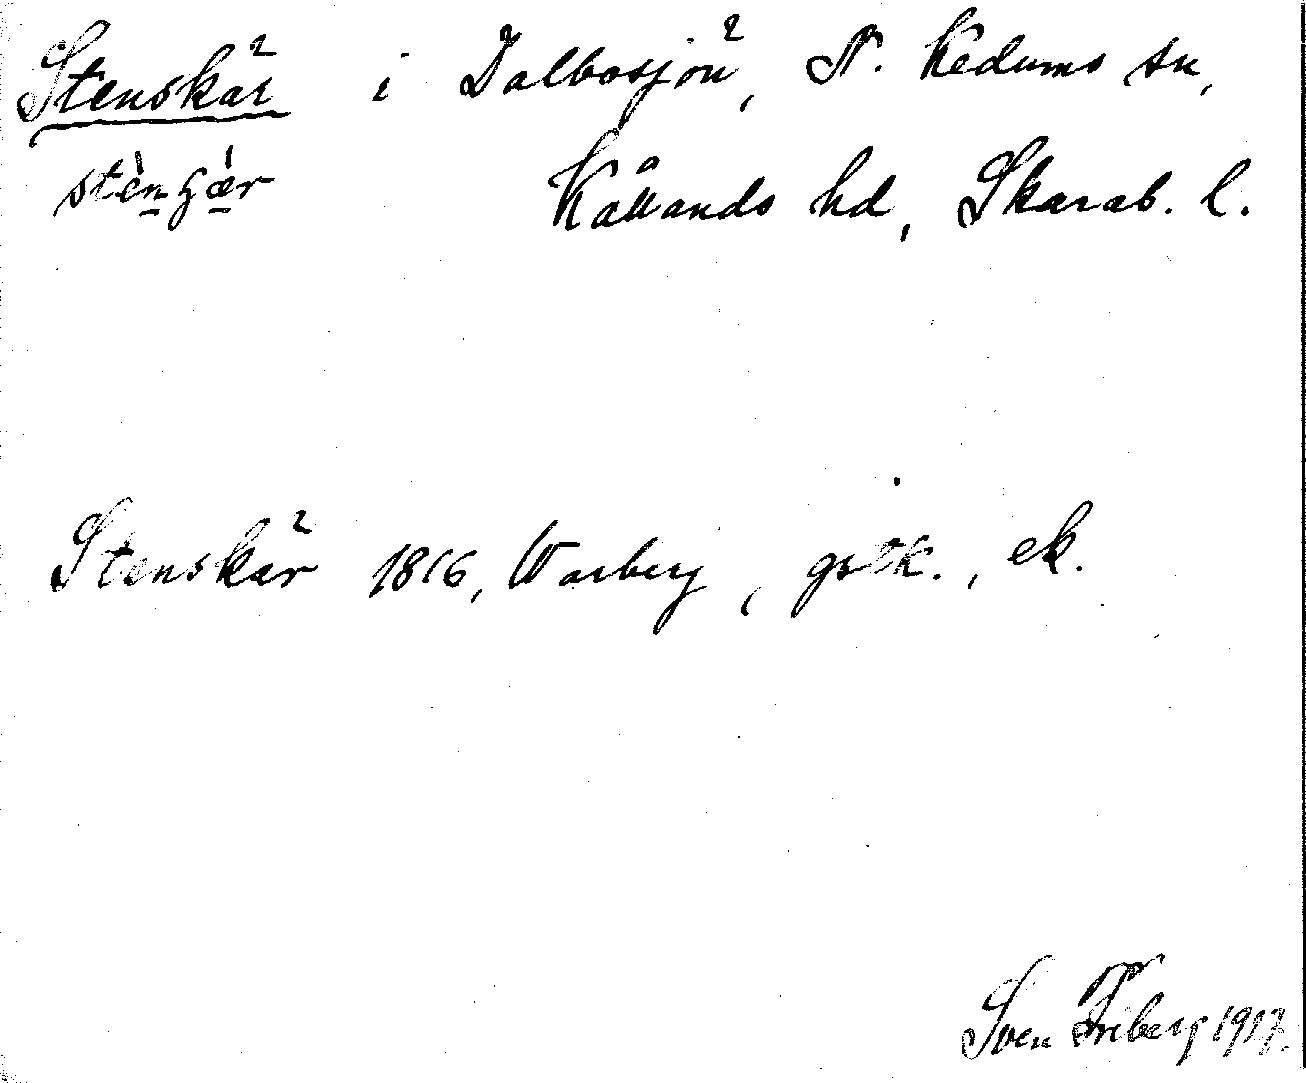 Stenskär i Dalbosjön, N. Kedums sn,
Kållands hd, Skarab. l.
Stenskär 1816, Warberg, gstk., ek.
Sven Friberg 1917.